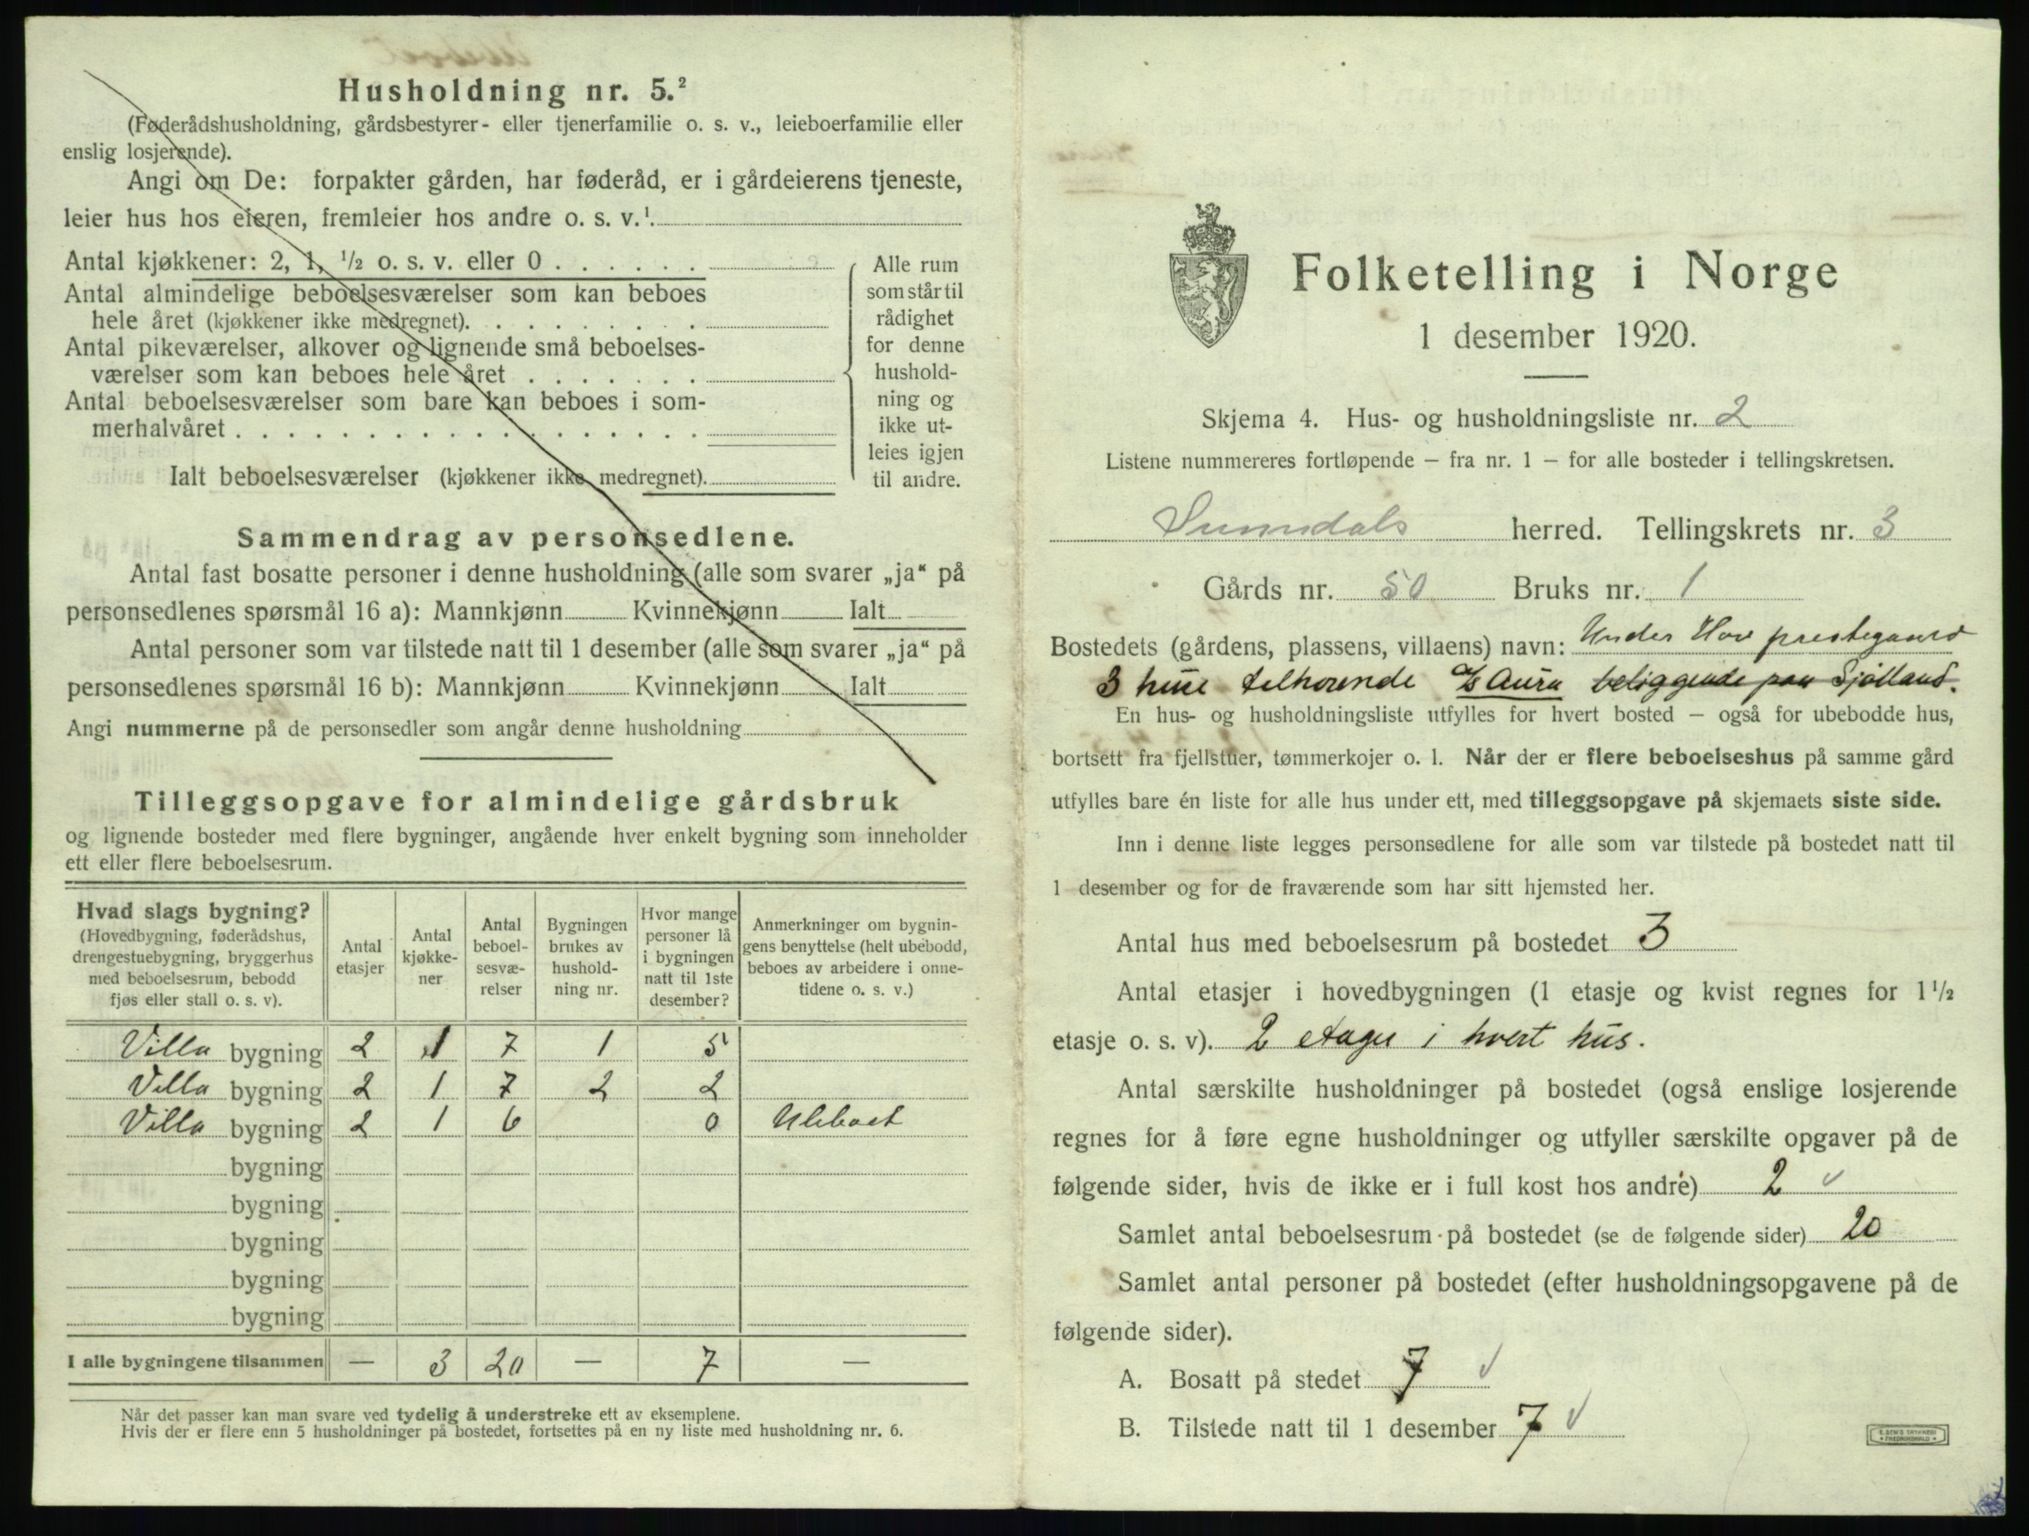 Husholdning nr. 5.²
(Føderådshusholdning, gårdsbestyrer- eller tjenerfamilie o. s. v., leieboerfamilie eller
enslig losjerende).
Angi om De: forpakter gården, har føderåd, er i gårdeierens tjeneste,
leier hus hos eieren, fremleier hos andre o. s. v.¹
Antal kjøkkener: 2, 1, ½ o. s. v. eller 0
Antal almindelige beboelsesværelser som kan beboes
hele året (kjøkkener ikke medregnet).
Antal pikeværelser, alkover og lignende små beboelses-
værelser som kan beboes hele året
Antal beboelsesværelser som bare kan beboes i som-
merhalvåret
Ialt beboelsesværelser (kjøkkener ikke medregnet).
Alle rum
som står til
rådighet
for denne
hushold-
ning og
ikke ut-
leies igjen
til andre.
Sammendrag av personsedlene.
Antal fast bosatte personer i denne husholdning (alle som svarer „ja“ på
personsedlenes spørsmål 16 a): Mannkjønn Kvinnekjønn Ialt
Antal personer som var tilstede natt til 1 desember (alle som svarer „ja“ på
personsedlenes spørsmål 16 b): Mannkjønn Kvinnekjønn Ialt
Angi nummerne på de personsedler som angår denne husholdning
Tilleggsopgave for almindelige gårdsbruk
og lignende bosteder med flere bygninger, angående hver enkelt bygning som inneholder
ett eller flere beboelsesrum.
Hvad slags bygning?
(Hovedbygning, føderådshus,
drengestuebygning, bryggerhus
med beboelsesrum, bebodd
fjøs eller stall o. s. v).
Antal
etasjer
Antal
kjøkke-
ner
Antal
beboel-
sesvæ-
relser
Bygningen
brukes av
hushold-
ning nr.
Hvor mange
personer lå
i bygningen
natt til 1ste
desember?
Anmerkninger om bygnin-
gens benyttelse (helt ubebodd,
beboes av arbeidere i onne-
tidene o. s. v.)
Villa bygning 2 1 7 1 5
Villa bygning 2 1 7 2 2
Villa bygning 2 1 6 0 Uleboet
bygning
bygning
bygning
bygning
bygning
I alle bygningene tilsammen — 3 20 — 7 —
Når det passer kan man svare ved tydelig å understreke ett av eksemplene.
Hvis der er flere enn 5 husholdninger på bostedet, fortsettes på en ny liste med husholdning nr. 6.
Folketelling i Norge
1 desember 1920.
Skjema 4. Hus- og husholdningsliste nr. 2
Listene nummereres fortløpende – fra nr. 1 – for alle bosteder i tellingskretsen.
Sunndals herred. Tellingskrets nr. 3
Gårds nr. 50 Bruks nr. 1
Bostedets (gårdens, plassens, villaens) navn: Under Hov prestegaard
3 huse tilhørende A/S Aura beliggende paa Sjølland.
En hus- og husholdningsliste utfylles for hvert bosted – også for ubebodde hus,
bortsett fra fjellstuer, tømmerkojer o. l. Når der er flere beboelseshus på samme gård
utfylles bare én liste for alle hus under ett, med tilleggsopgave på skjemaets siste side.
Inn i denne liste legges personsedlene for alle som var tilstede på bostedet natt til
1 desember og for de fraværende som har sitt hjemsted her.
Antal hus med beboelsesrum på bostedet 3
Antal etasjer i hovedbygningen (1 etasje og kvist regnes for 1½
etasje o. s. v). 2 etager i hvert hus.
Antal særskilte husholdninger på bostedet (også enslige losjerende
regnes for å føre egne husholdninger og utfyller særskilte opgaver på de
følgende sider, hvis de ikke er i full kost hos andre) 2 ✓
Samlet antal beboelsesrum på bostedet (se de følgende sider) 20
Samlet antal personer på bostedet (efter husholdningsopgavene på de
følgende sider).
A. Bosatt på stedet 7 ✓
B. Tilstede natt til 1 desember 7 ✓